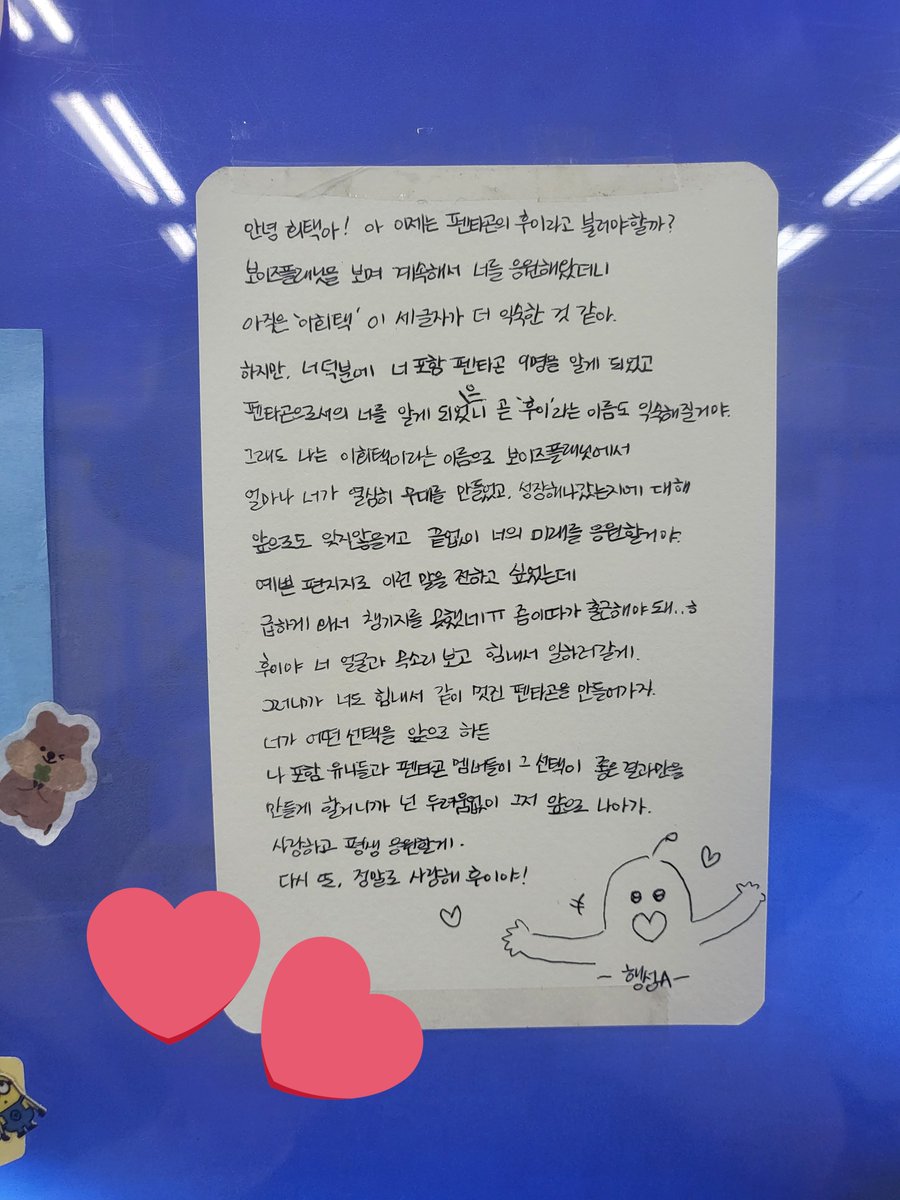 안녕 희택아! 아 이제는 펜타곤의 후이라고 불러야할까?
보이즈플래닛을 보며 계속해서 너를 응원해왔더니
아직은 '이희택' 이 세글자가 더 익숙한 것 같아.
하지만, 너덕분에 너 포함 펜타곤 9명을 알게 되었고
펜타곤으로서의 너를 알게 되었으니 곧 '후이'라는 이름도 익숙해질거야.
그래도 나는 이희택이라는 이름으로 보이즈플래닛에서
얼마나 너가 열심히 무대를 만들었고, 성장해나갔는지에 대해
앞으로도 잊지않을거고 끝없이 너의 미래를 응원할거야.
예쁜 편지지로 이런 말을 전하고 싶었는데
급하게 와서 챙기지를 못했네ㅠㅠ 좀이따가 출근해야돼..ㅎ
후이야 너 얼굴과 목소리 보고 힘내서 일하러갈게.
그러니까 너도 힘내서 같이 멋진 펜타곤을 만들어가자.
너가 어떤 선택을 앞으로 하든
나 포함 유니들과 펜타곤 멤버들이 그 선택이 좋은 결과만을
만들게 할거니까 넌 두려움없이 그저 앞으로 나아가.
사랑하고 평생 응원할게.
다시 또, 정말로 사랑해 후이야!
- 행성A -